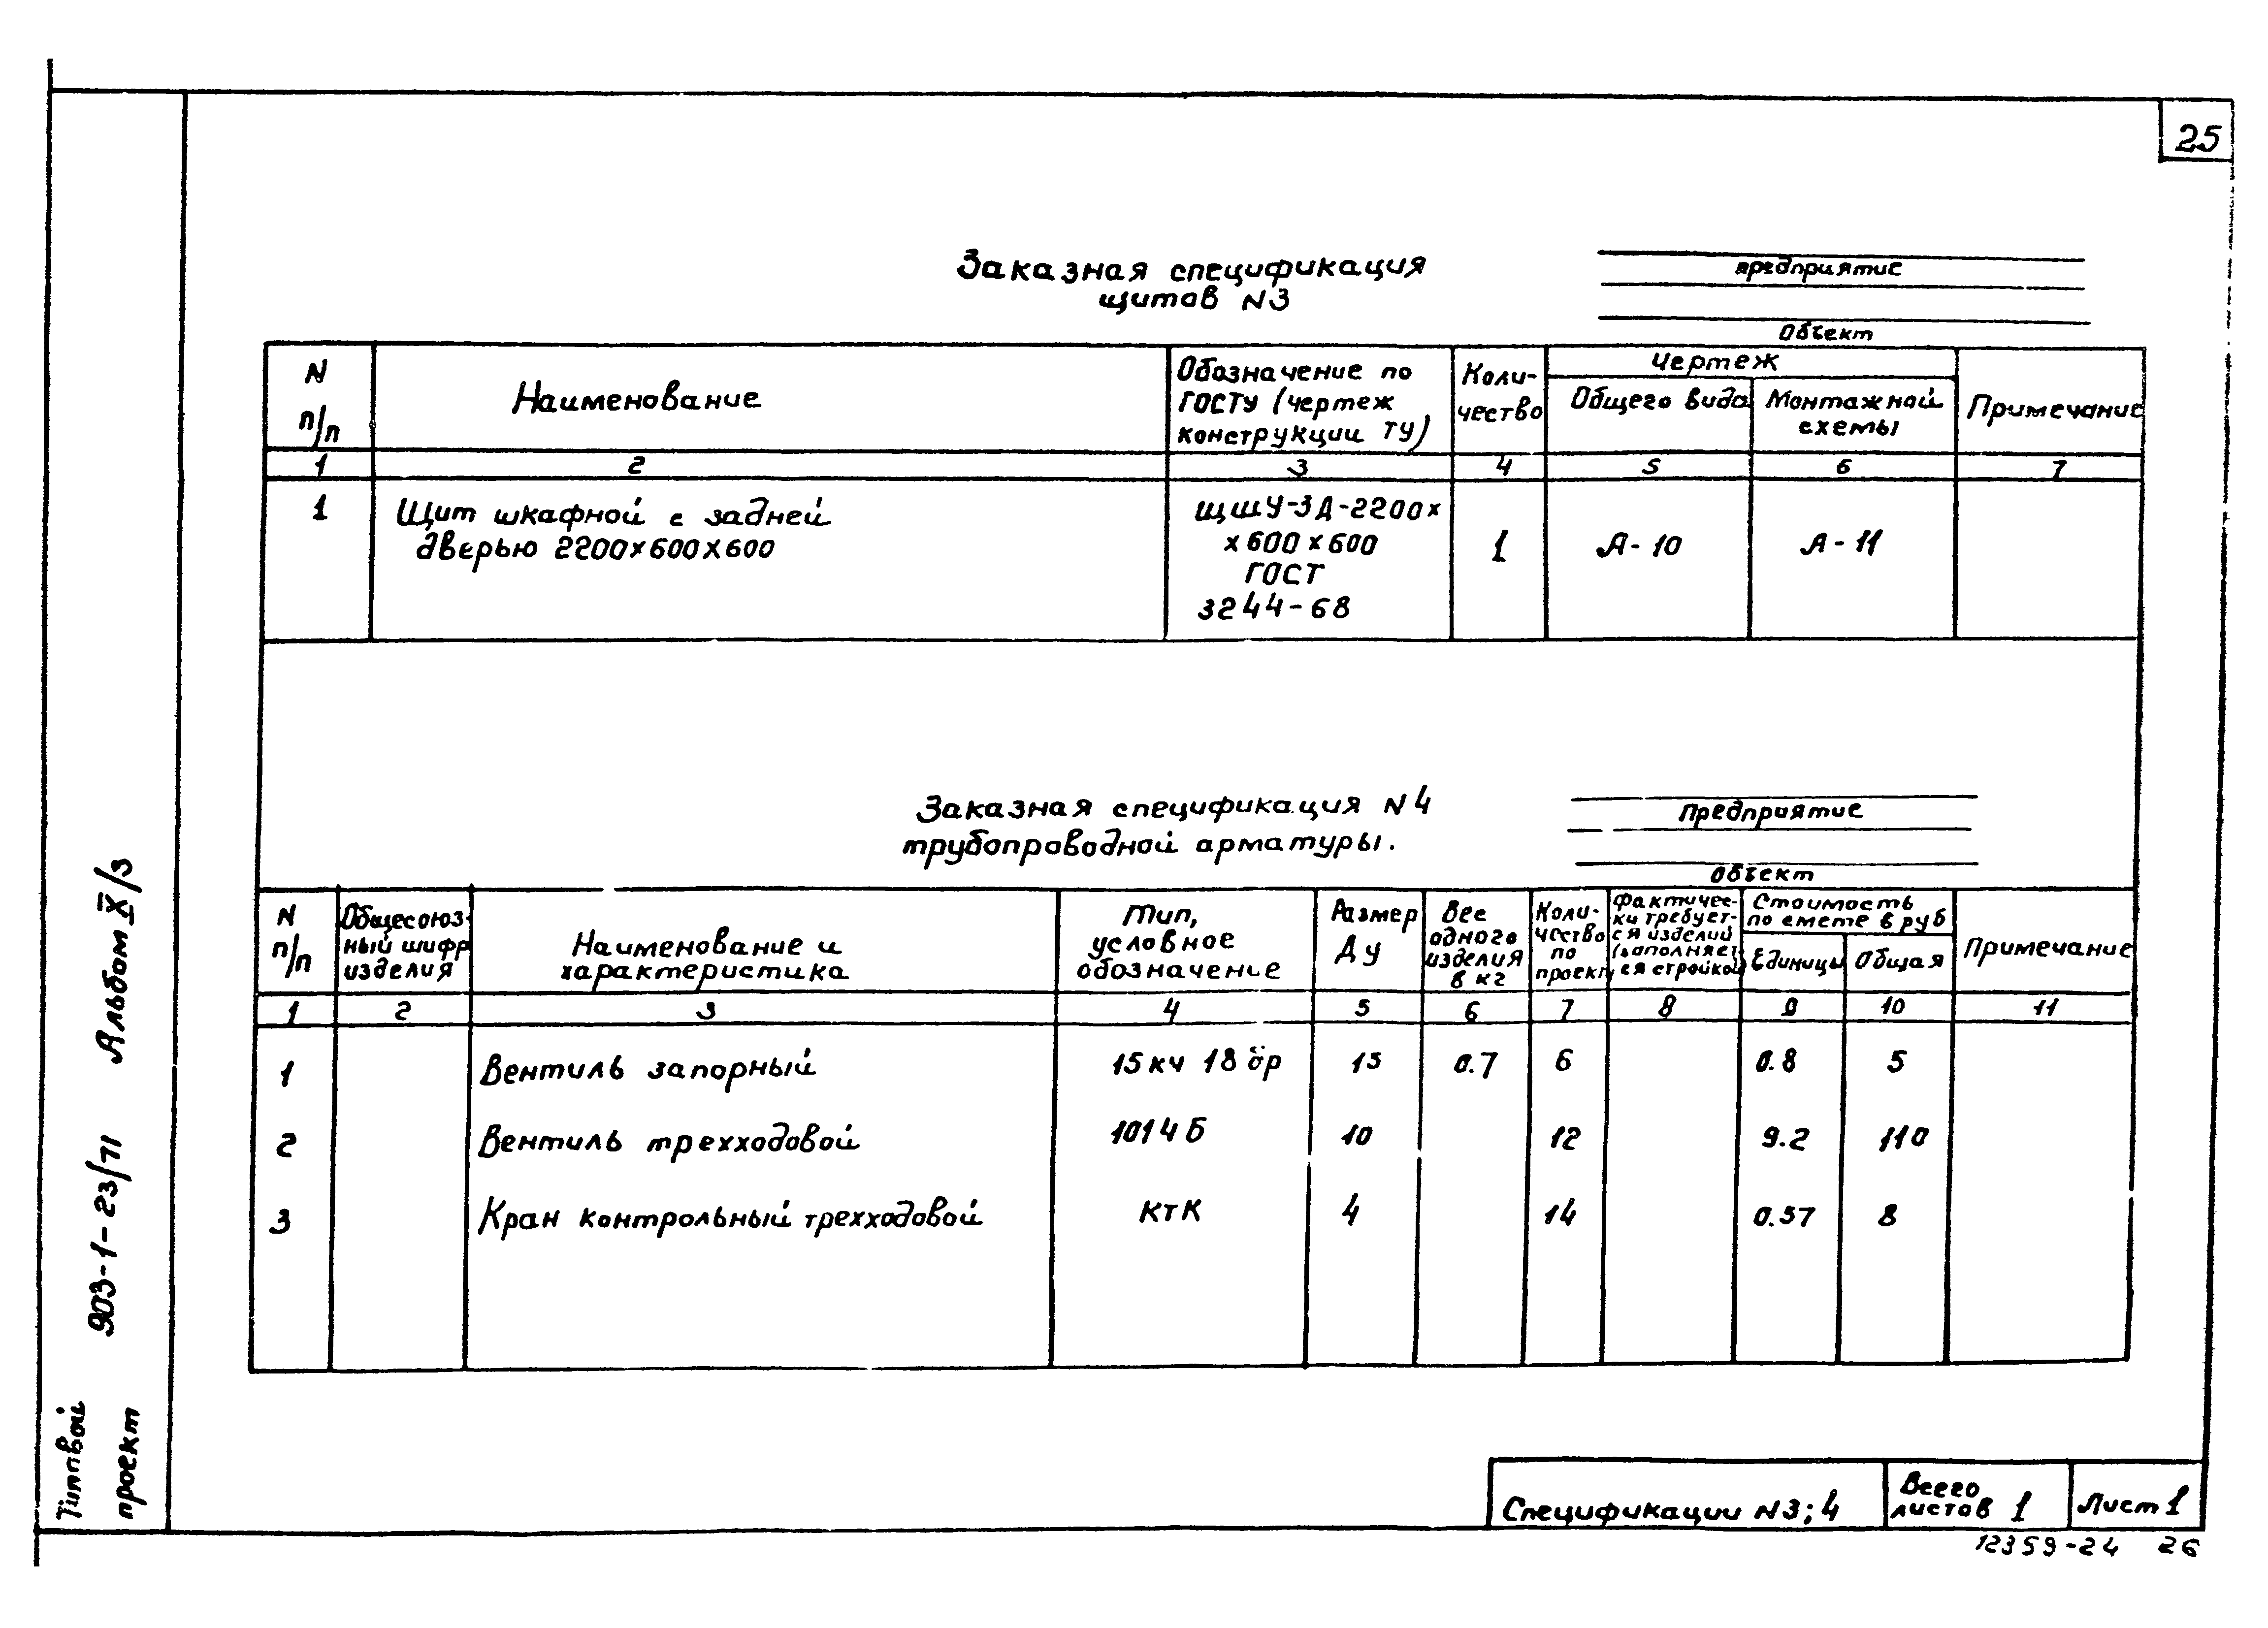 25
Заказная спецификация
щитав N3
предприятие
Объект
N п/п
Наименование
Обозначение по ГОСТУ (чертеж конструкции ТУ)
Коли-чество
Чертеж
Общего вида
Монтажной схемы
Примечание
1 2 3 4 5 6 7
1
Щит шкафной с задней
дверью 2200х600х600
ЩШУ-3Д-2200х
х600х600
ГОСТ
3244-68
1
А-10
А-11
Заказная спецификация N4
трубопроводной арматуры.
Предприятие
Объект
N п/п
Общесоюз-ный шифр изделия
Наименование и характеристика
Тип, условное обозначение
Размер Ду
Вес одного изделия в кг
Коли-чество по проекту
Фактичес-ки требует-ся изделий (заполняет-ся стройкой)
Стоимость по смете в руб
Единицы
Общая
Примечание
1 2 3 4 5 6 7 8 9 10 11
1 Вентиль запорный 15кч 18бр 15 0.7 6 0.8 5
2 Вентиль трехходовой 1014Б 10 12 9.2 110
3 Кран контрольный трехходовой КТК 4 14 0.57 8
Типовой
проект
903-1-23/71 Альбом IX/3
Спецификации N3;4
Всего
листов 1
Лист 1
12359-24 26